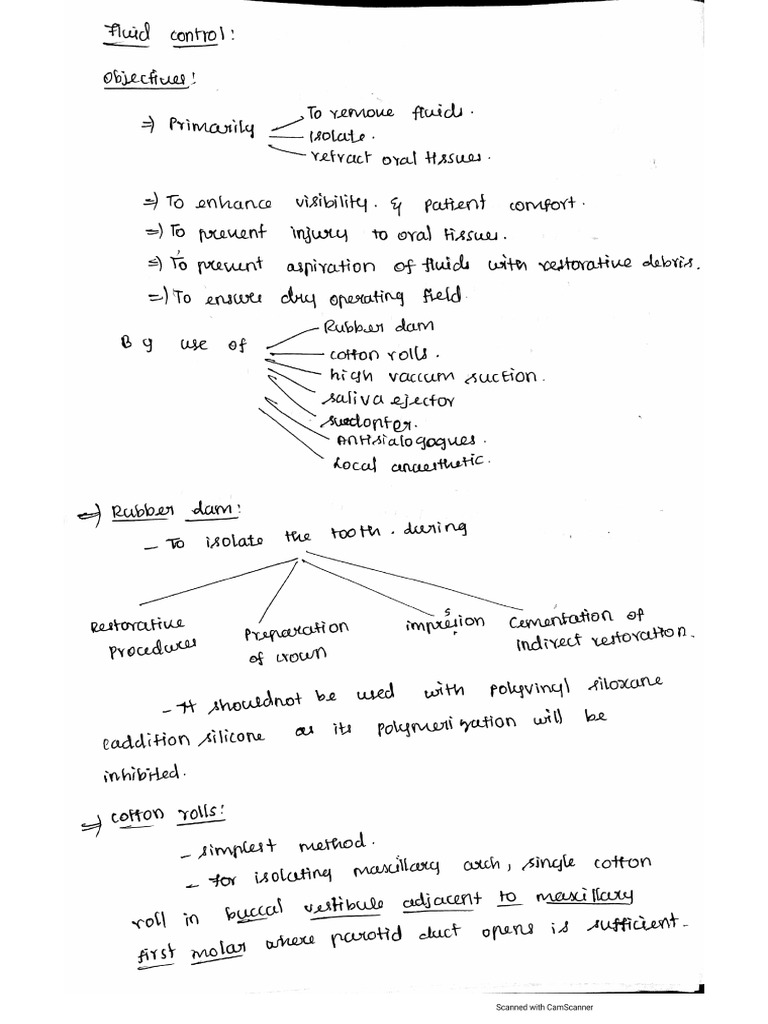 Fluid control:
Objectives:
=) Primarily
To remove fluids.
isolate.
retract oral tissues.
=) To enhance visibility. & patient comfort.
=) To prevent injury to oral tissues.
=) To prevent aspiration of fluids with restorative debris.
=) To ensure dry operating field.
By use of
Rubber dam
cotton rolls.
high vaccum suction.
saliva ejector
Antisialogogues.
Local anaesthetic.
=) Rubber dam:
- To isolate the tooth. during
Restorative Procedures
Preparation of crown
impression
Cementation of indirect restoration.
- It shouldnot be used with polyvinyl siloxane
(addition silicone as its polymerization will be
inhibited.
=) cotton rolls:
- simplest method.
- for isolating maxillary arch, single cotton
roll in buccal vestibule adjacent to maxillary
first molar where parotid duct opens is sufficient.
Scanned with CamScanner